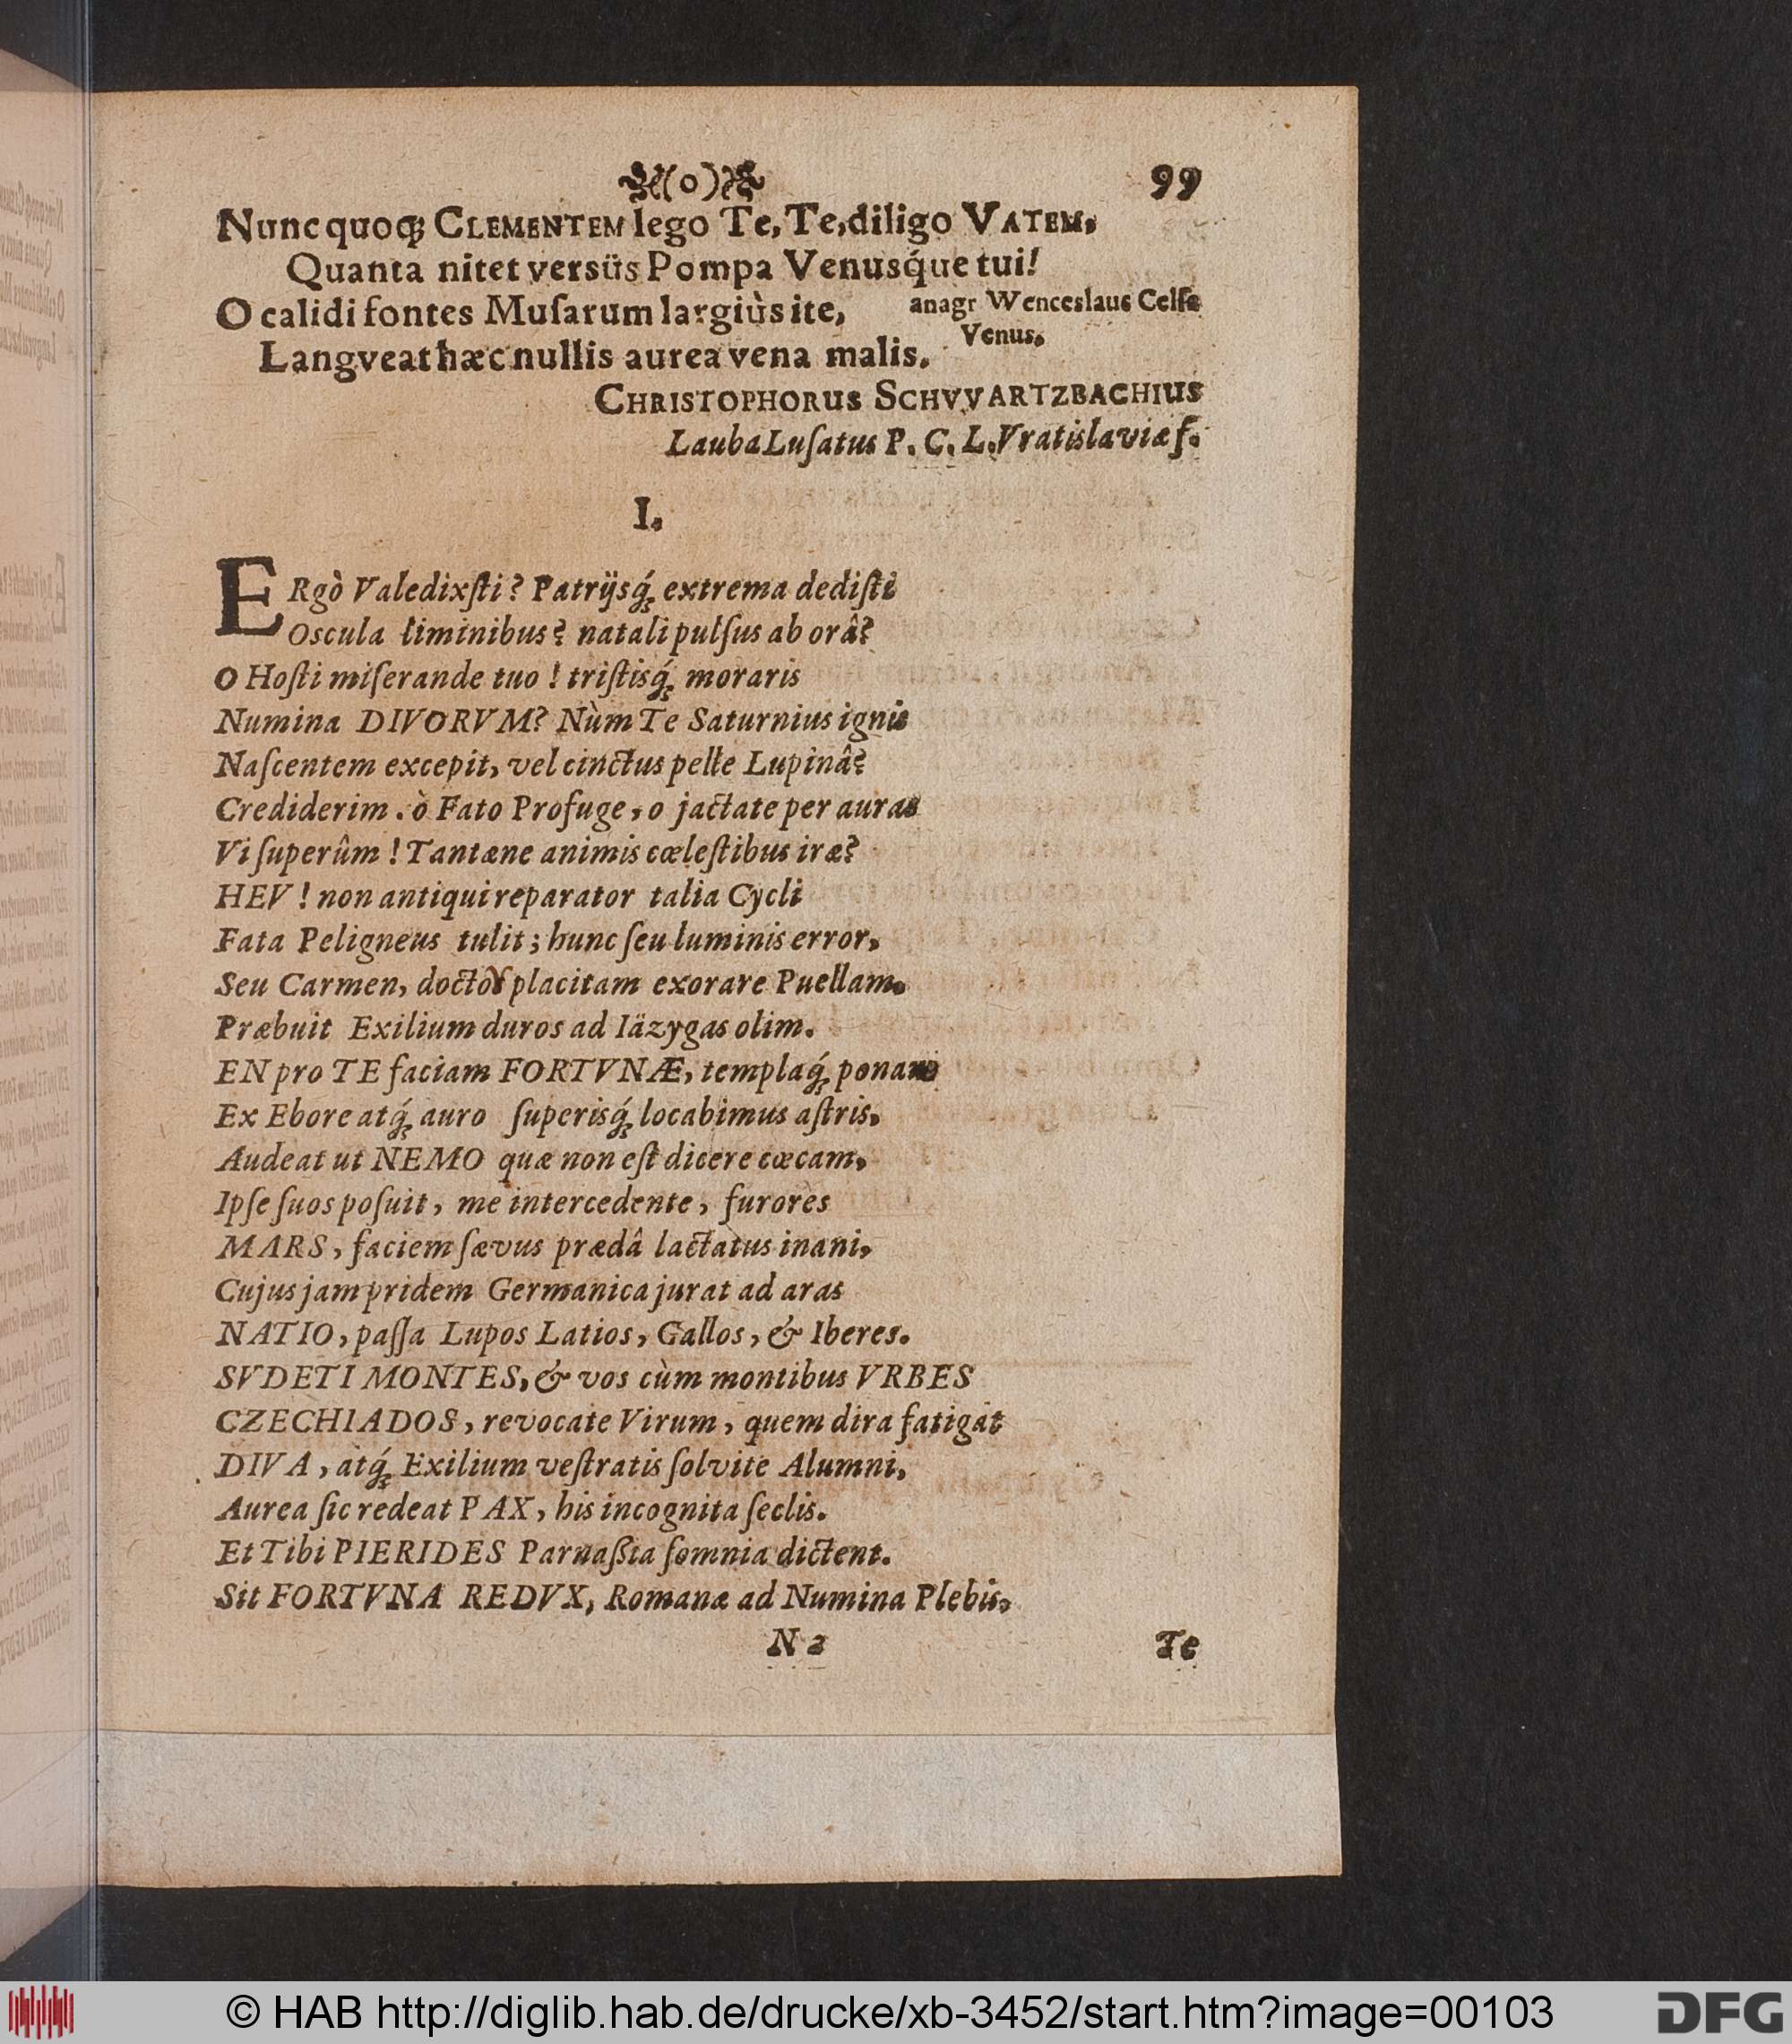 (o) 99
Nunc quoq; CLEMENTEM lego Te, Te, diligo VATEM.
Quanta nitet versüs Pompa Venusq́ue tui!
O calidi fontes Muſarum largiùs ite, anagr Wenceslaus Celſa
Venus.
Langveat hæc nullis aurea vena malis.
CHRISTOPHORUS SCHVVARTZBACHIUS
Lauba Luſatus P. C. L. Vratislaviæ f.
I.
ERgò Valedixſti? Patrijsq́; extrema dediſti
Oscula liminibus? natali pulſus ab orâ?
O Hoſti miſerande tuo! triſtisq́; moraris
Numina DIVORVM? Nùm Te Saturnius ignis
Naſcentem excepit, vel cinctus pelle Lupinâ?
Crediderim. ò Fato Profuge, o jactate per auras
Vi ſuperûm! Tantæne animis cœleſtibus iræ?
HEV! non antiqui reparator talia Cycli
Fata Peligneus tulit; hunc ſeu luminis error,
Seu Carmen, doctoꝝ placitam exorare Puellam.
Præbuit Exilium duros ad Iäzygas olim.
EN pro TE faciam FORTVNÆ, templaq́; ponam
Ex Ebore atq́; auro ſuperisq́; locabimus aſtris,
Audeat ut NEMO quæ non eſt dicere cœcam,
Ipſe ſuos poſuit, me intercedente, furores
MARS, faciem ſævus prædâ lactatus inani,
Cujus jampridem Germanica jurat ad aras
NATIO, paſſa Lupos Latios, Gallos, & Iberes.
SVDETI MONTES, & vos cùm montibus VRBES
CZECHIADOS, revocate Virum, quem dira fatigat
DIVA, atq́; Exilium veſtratis ſolvite Alumni,
Aurea ſic redeat PAX, his incognita ſeclis.
Et Tibi PIERIDES Parnaßia ſomnia dictent.
Sit FORTVNA REDVX, Romanæ ad Numina Plebis,
N 2 Te
© HAB http://diglib.hab.de/drucke/xb-3452/start.htm?image=00103 DFG